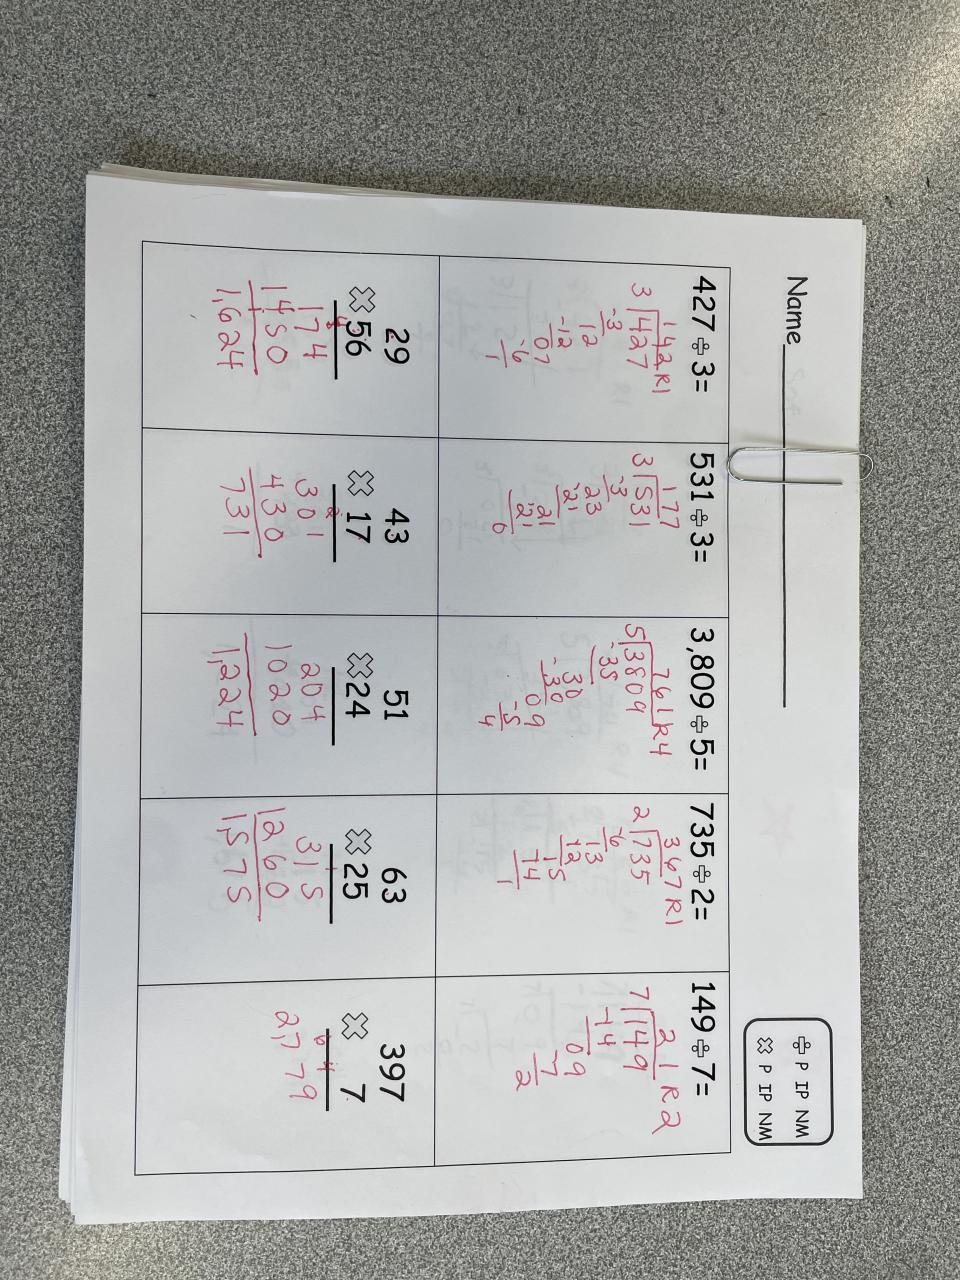 Name
÷ P IP NM
× P IP NM
427 ÷ 3=
142R1
3 427
-3
12
-12
07
-6
1
531 ÷ 3=
177
3 531
-3
23
-21
21
-21
0
3,809 ÷ 5=
761R4
5 3809
-35
30
-30
09
-5
4
735 ÷ 2=
367R1
2 735
-6
13
12
15
14
1
149 ÷ 7=
21R2
7 149
-14
09
-7
2
29
× 56
174
1450
1,624
43
× 17
2
301
430
731
51
×24
204
1020
1,224
63
× 25
1
315
1260
1,575
397
× 7
6 4
2,779